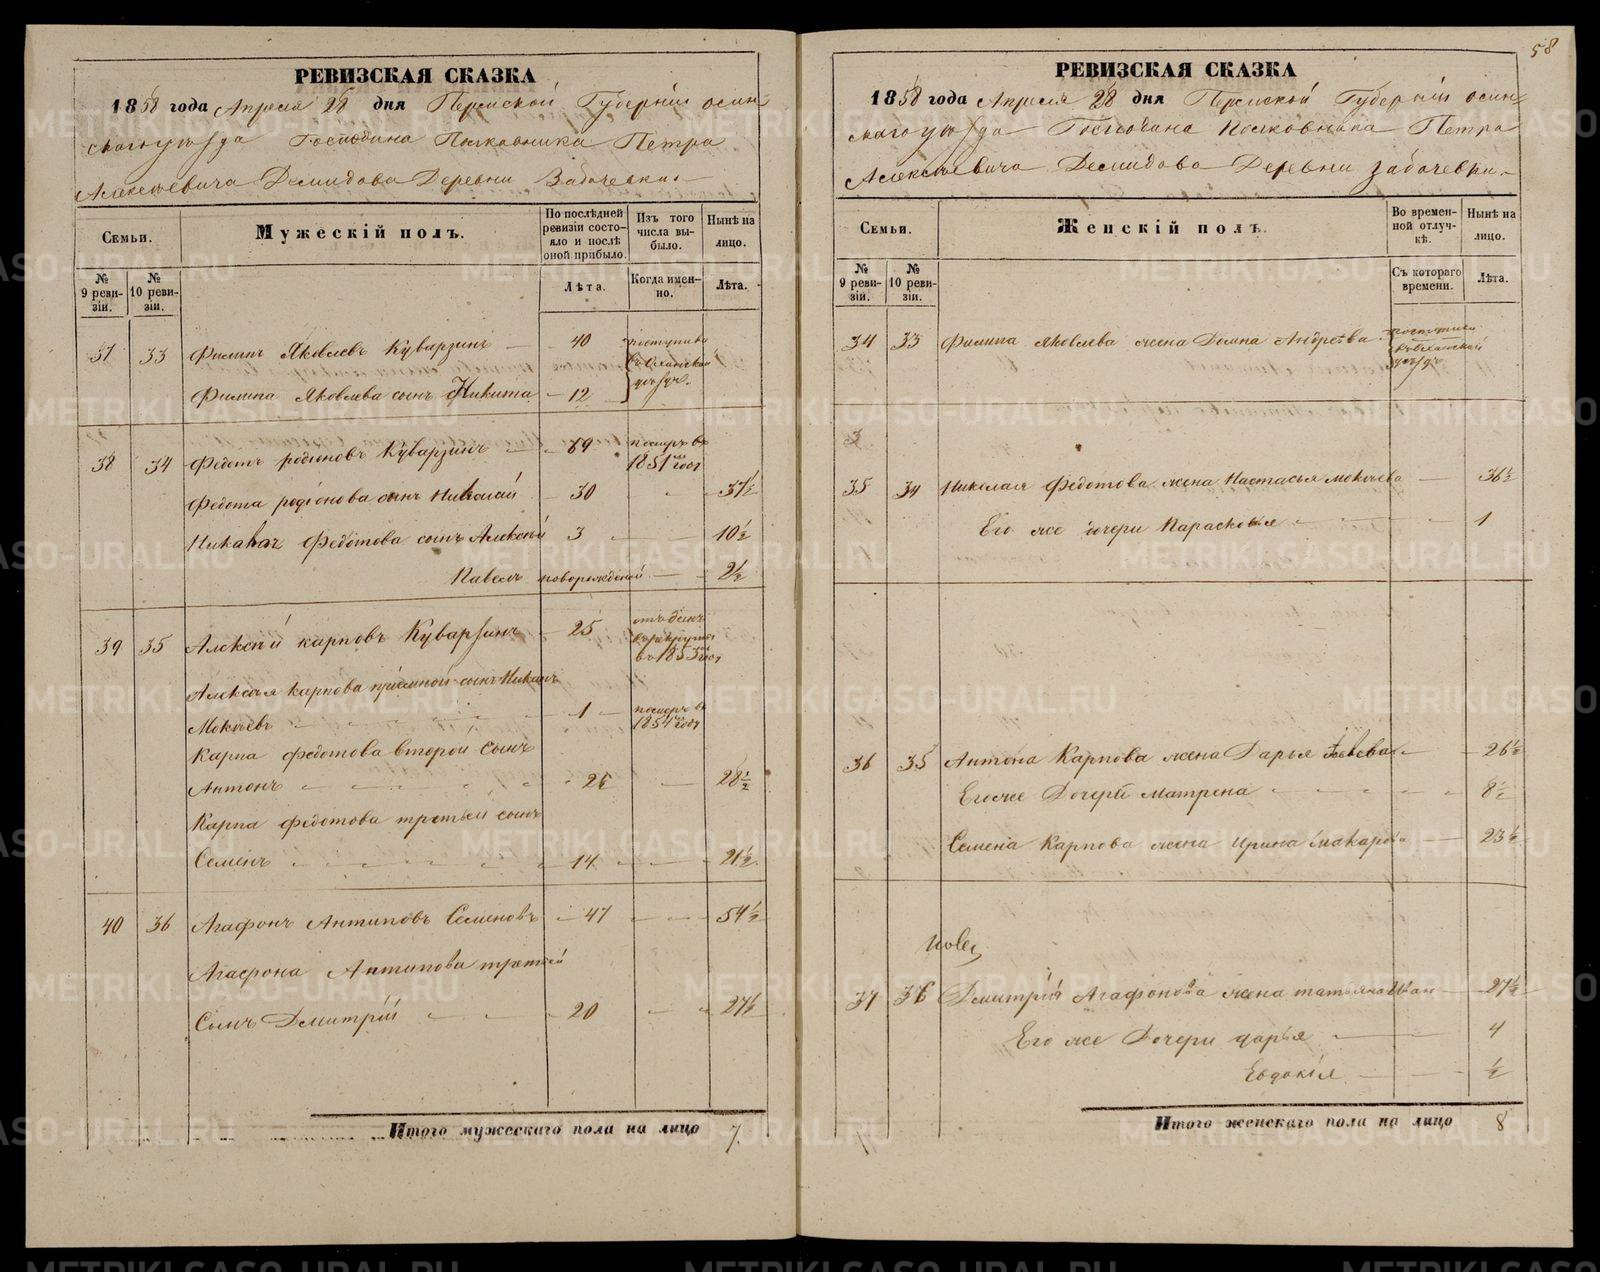 58
РЕВИЗСКАЯ СКАЗКА
1858 года Апреля 28 дня Пермской Губерніи осин-
скаго уѣзда Господина Полковника Петра
Алексѣевича Демидова Деревни Забочевки
Семьи.
Мужескій полъ.
По послѣдней ревизіи состо-
яло и послѣ оной прибыло.
Изъ того числа вы-
было.
Нынѣ на лицо.
№ 9 реви-
зіи.
№ 10 реви-
зіи.
Лѣта.
Когда имен-
но.
Лѣта.
37 33 Филипъ Яковлевъ Куварзинъ 40
въ Оханской
уѣздъ
Филипа Яковлева сынъ Никита 12
38 34 Федотъ родіоновъ Куварзинъ 69 померъ въ
1851 году
Федота родіонова сынъ Николай 30 37½
Федотова сынъ Алексѣй 3 10½
Павелъ новорожденый 2½
39 35 Алексѣй карповъ Куварзинъ 25
въ рекруты
въ 1853 году
Алексѣя карпова пріемной сынъ
Мокѣевъ 1 померъ въ
1854 году
Карпа федотова второй сынъ
Антонъ 28½
Карпа федотова третьей сынъ
Семенъ 14 21½
40 36 Агафонъ Антиповъ Семеновъ 47 54½
Агафона Антипова третьей
Сынъ Дмитрій 20 27½
Итого мужескаго пола на лицо 7
РЕВИЗСКАЯ СКАЗКА
1858 года Апреля 28 дня Пермской Губерніи осин-
скаго уѣзда Господина Полковника Петра
Алексѣевича Демидова Деревни Забочевки
Семьи.
Женскій полъ.
Во времен-
ной отлуч-
кѣ.
Нынѣ на лицо.
№ 9 реви-
зіи.
№ 10 реви-
зіи.
Съ котораго времени.
Лѣта.
34 33 Филипа яковлева жена Домна Андреева
въ Оханской
уѣздъ
3
35 34 Николая Федотова жена Настасья мокѣева 36½
Его же дочери Парасковья 1
36 35 Антона Карпова жена Дарья 26½
Егоже Дочери матрена 8½
Семена Карпова жена Ирина макаро 23½
37 36 Дмитрія Агафонова жена татьяна Иван 27½
Его же Дочери дарья 4
Евдокія ½
Итого женскаго пола на лицо 8
METRIKI.GASO-URAL.RU